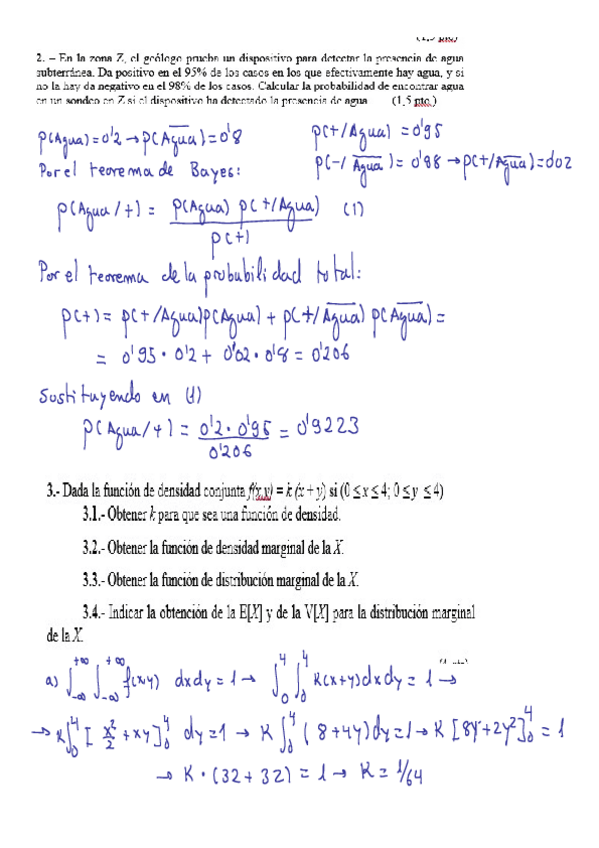 2. – En la zona Z, el geólogo prueba un dispositivo para detectar la presencia de agua
subterránea. Da positivo en el 95% de los casos en los que efectivamente hay agua, y si
no la hay da negativo en el 98% de los casos. Calcular la probabilidad de encontrar agua
en un sondeo en Z si el dispositivo ha detectado la presencia de agua (1,5 pto.)
p(Agua) = 0'2 → p(A̅g̅u̅a̅) = 0'8 p(+/Agua) = 0'95
p(-/A̅g̅u̅a̅) = 0'98 → p(+/A̅g̅u̅a̅) = 0'02
Por el teorema de Bayes:
p(Agua/+) = p(Agua) p(+/Agua) / p(+) (1)
Por el teorema de la probabilidad total:
p(+) = p(+/Agua)p(Agua) + p(+/A̅g̅u̅a̅) p(A̅g̅u̅a̅) =
= 0'95 · 0'2 + 0'02 · 0'8 = 0'206
Sustituyendo en (1)
p(Agua/+) = 0'2 · 0'95 / 0'206 = 0'9223
3.- Dada la función de densidad conjunta f(x,y) = k (x + y) si (0 ≤ x ≤ 4; 0 ≤ y ≤ 4)
3.1.- Obtener k para que sea una función de densidad.
3.2.- Obtener la función de densidad marginal de la X.
3.3.- Obtener la función de distribución marginal de la X.
3.4.- Indicar la obtención de la E[X] y de la V[X] para la distribución marginal
de la X.
a) ∫₋∞^+∞ ∫₋∞^+∞ f(x,y) dxdy = 1 → ∫₀⁴ ∫₀⁴ K(x+y)dxdy = 1 →
→ K∫₀⁴ [x²/2 + xy]₀⁴ dy = 1 → K ∫₀⁴ (8+4y)dy = 1 → K [8y + 2y²]₀⁴ = 1
→ K · (32 + 32) = 1 → K = 1/64